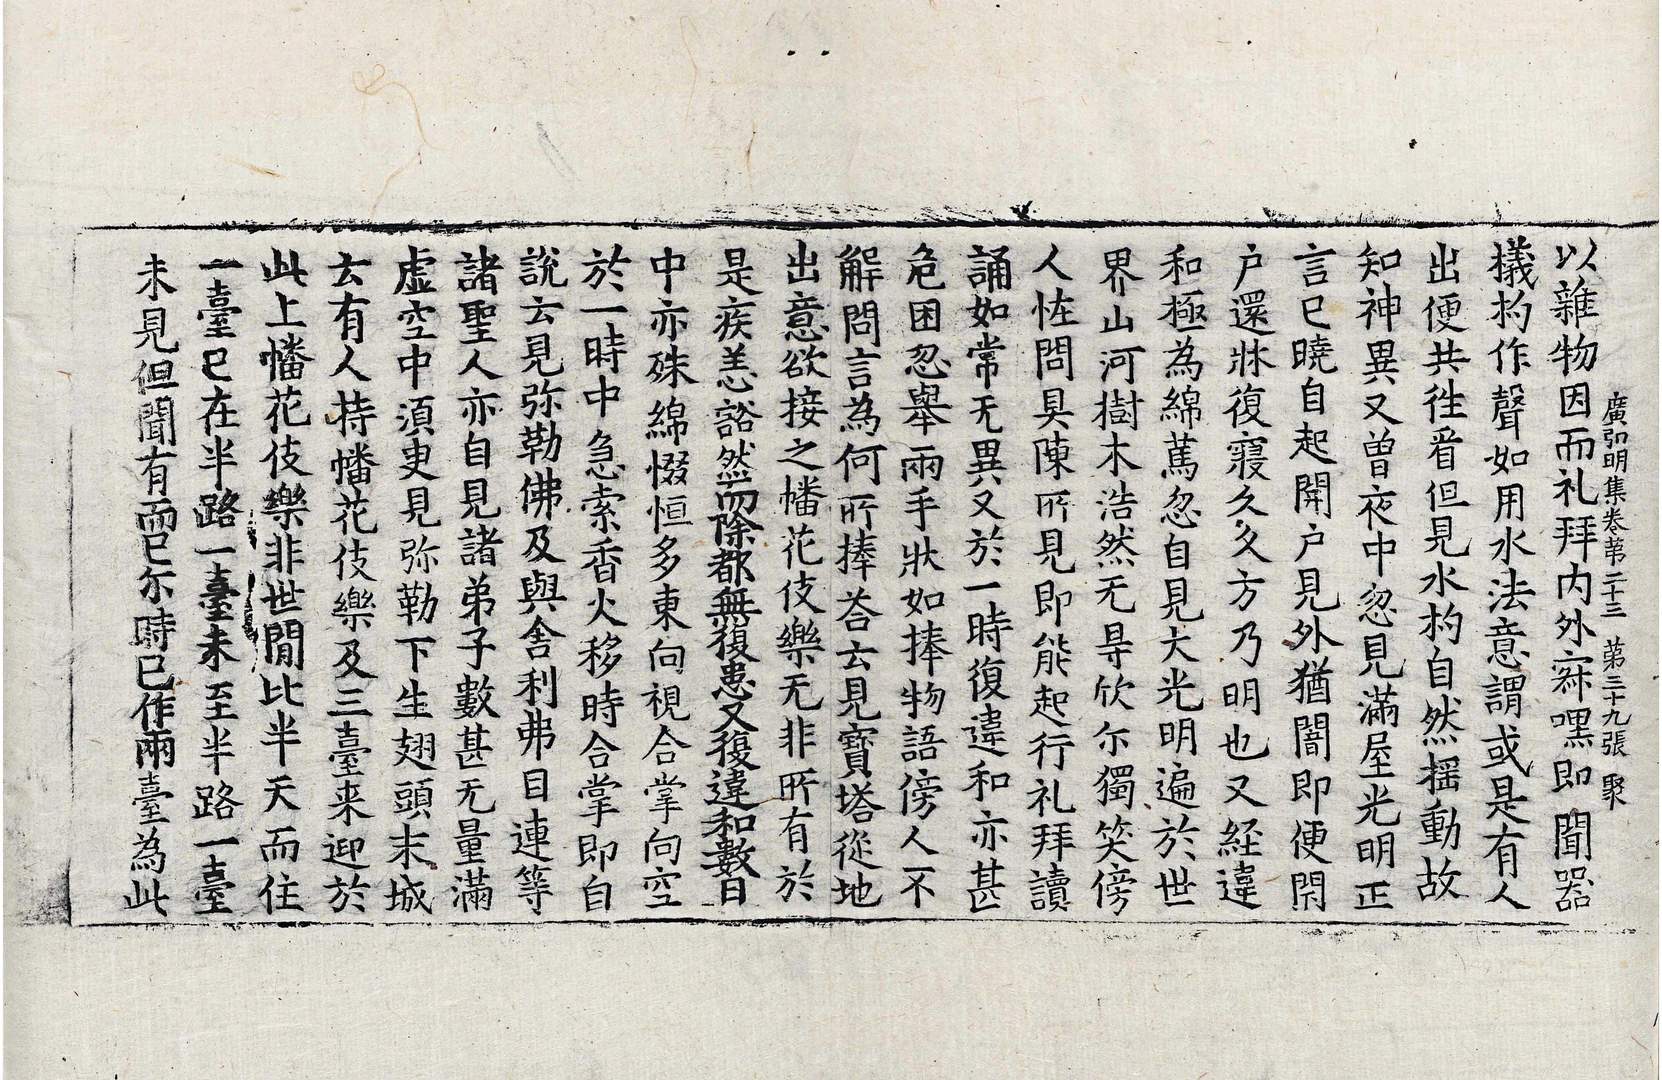 廣弘明集卷苐二十三 第三十九張 聚
以雜物因而礼拜内外寂嘿即聞器
撓杓作聲如用水法意謂或是有人
出便共徃看但見水杓自然摇動故
知神異又曾夜中忽見滿屋光明正
言已曉自起開户見外猶闇即便閇
户還牀復寢久久方乃明也又経違
和極為綿篤忽自見大光明遍於世
界山河樹木浩然无㝵欣尒獨笑傍
人恠問具陳所見即能起行礼拜讀
誦如常无異又於一時復違和亦甚
危困忽舉兩手狀如捧物語傍人不
解問言為何所捧荅云見寶塔從地
出意欲接之幡花伎樂无非所有於
是疾恙豁然而除都無復患又復違和數日
中亦殊綿惙恒多東向視合掌向空
於一時中急索香火移時合掌即自
說云見弥勒佛及與舎利弗目連等
諸聖人亦自見諸弟子數甚无量滿
虚空中湏臾見弥勒下生翅頭末城
云有人持幡花伎樂及三臺来迎於
此上幡花伎樂非世間比半天而住
一臺已在半路一臺未至半路一臺
未見但聞有而已尒時已作兩臺為此